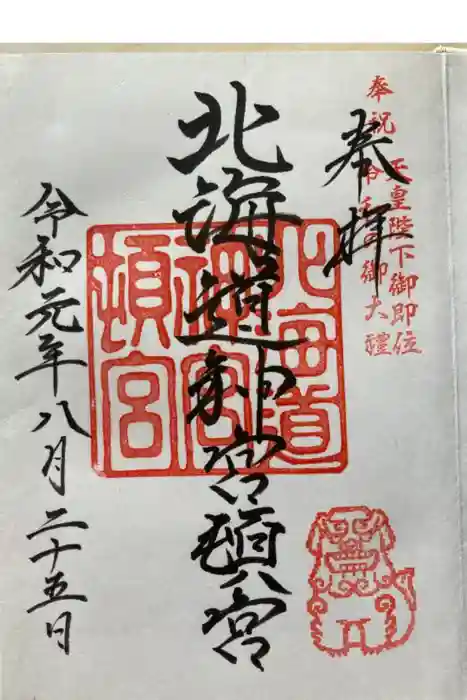 奉祝 天皇陛下御即位
令和の御大禮
奉拝
北海道神宮頓宮
北海道
神宮
頓宮
令和元年八月二十五日